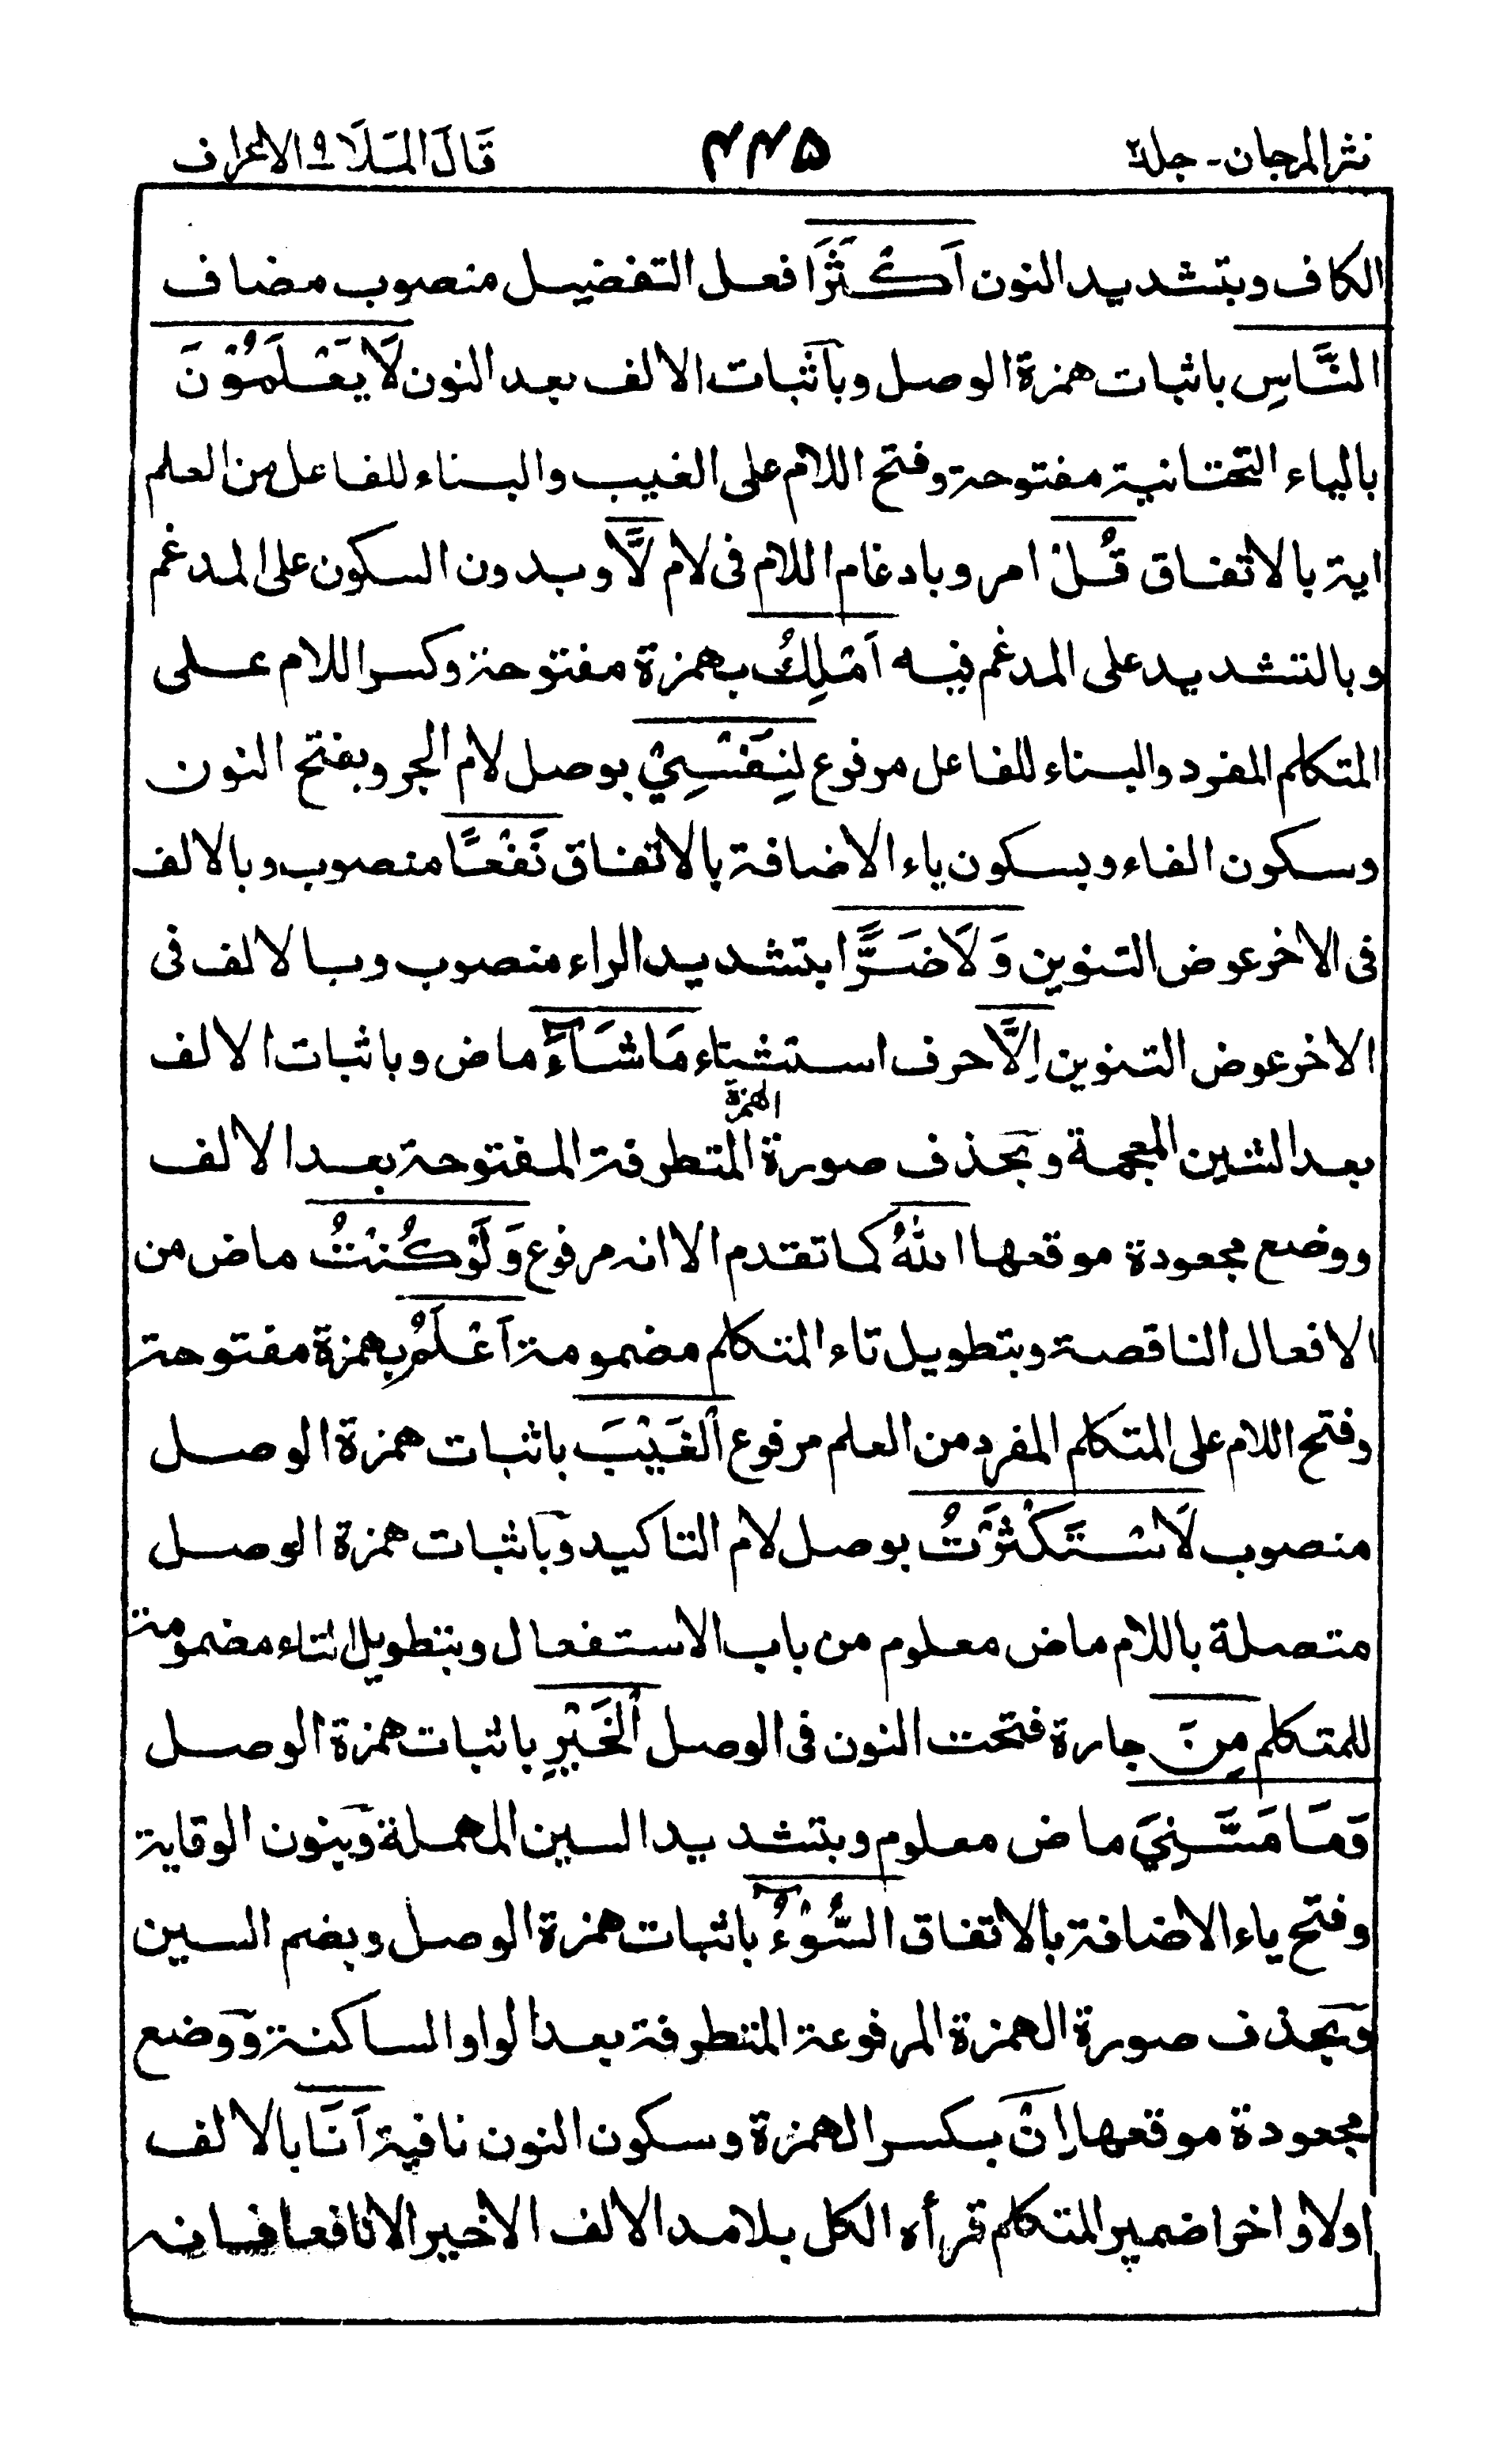 نثر المرجان - جلد٢ ٤٤٥ قَالَ الْمَلَأُ ٩ الاعراف
الكاف وبتشديد النون اَكْثَرَ افعل التفضيل منصوب مضاف
النَّاسِ باثبات همزة الوصل وبآثبات الالف بعد النون لَا يَعْلَمُوْنَ
بالياء التحتانية مفتوحة وفتح اللام على الغيب والبناء للفاعل من العلم
اية بالاتفاق قُلْ امر وبادغام اللام فى لام لَّا وبدون السكون على المدغم
وبالتشديد على المدغم فيه اَمْلِكُ بهمزة مفتوحة وكسر اللام على
المتكلم المفرد والبناء للفاعل مرفوع لِنَفْسِيْ بوصل لام الجر وبفتح النون
وسكون الفاء وبسكون ياء الاضافة بالاتفاق نَفْعًا منصوب وبالالف
فى الاخر عوض التنوين وَلَا ضَرًّا بتشديد الراء منصوب وبالالف فى
الاخر عوض التنوين اِلَّا حرف استثناء مَا شَآءَ ماض وباثبات الالف
بعد الشين المعجمة وبحذف صورة الهمزة المتطرفة المفتوحة بعد الالف
ووضع مجعودة موقعها اللهُ كما تقدم الا انه مرفوع وَلَوْ كُنْتُ ماض من
الافعال الناقصة وبتطويل تاء المتكلم مضمومة اَعْلَمُ بهمزة مفتوحة
وفتح اللام على المتكلم المفرد من العلم مرفوع الْغَيْبَ باثبات همزة الوصل
منصوب لَاسْتَكْثَرْتُ بوصل لام التاكيد وبآثبات همزة الوصل
متصلة باللام ماض معلوم من باب الاستفعال وبتطويل التاء مضمومة
للمتكلم مِنَ جارة فتحت النون فى الوصل الْخَيْرِ باثبات همزة الوصل
وَمَا مَسَّنِيَ ماض معلوم وبتشديد السين المهملة وبنون الوقاية
وفتح ياء الاضافة بالاتفاق السُّوْٓءُ باثبات همزة الوصل وبضم السين
وبحذف صورة الهمزة المرفوعة المتطرفة بعد الواو الساكنة ووضع
مجعودة موقعها اِنْ بكسر الهمزة وسكون النون نافية اَنَا بالالف
اولا واخرا ضمير المتكلم قرأه الكل بلا مد الالف الاخير الا نافعا فانه